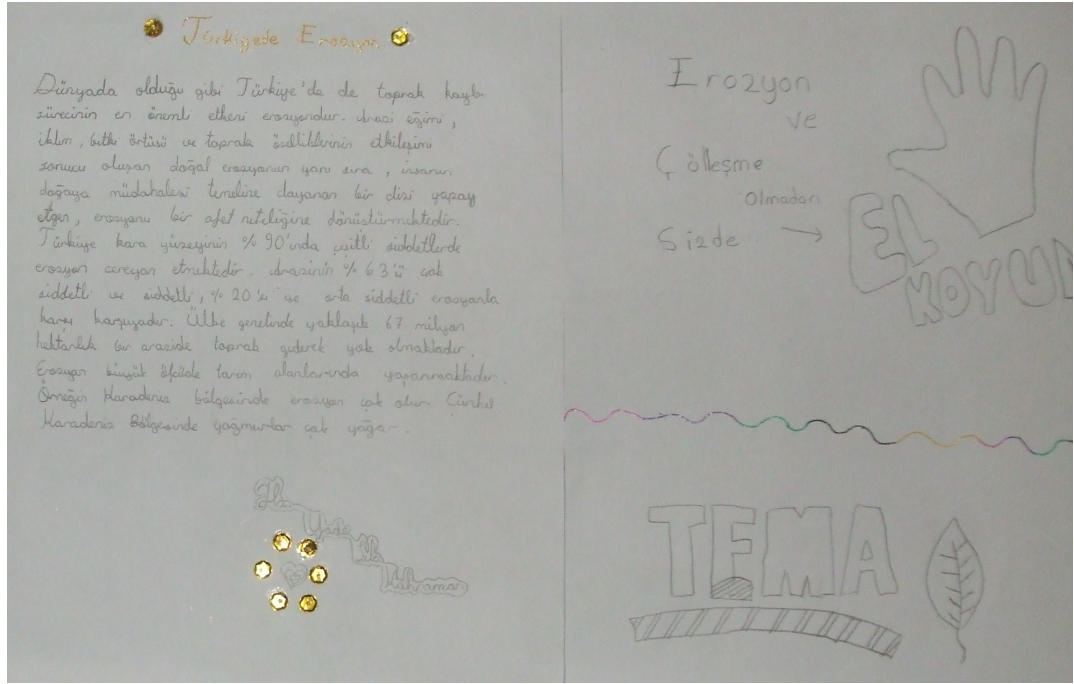 Türkiyede Erozyon
Dünyada olduğu gibi Türkiye'de de toprak kaybı
sürecinin en önemli etkeni erozyondur. Arazi eğimi,
iklim, bitki örtüsü ve toprak özelliklerinin etkileşimi
sonucu oluşan doğal erozyonun yanı sıra, insanın
doğaya müdahalesi temeline dayanan bir dizi yapay
etgen, erozyonu bir afet niteliğine dönüştürmektedir.
Türkiye kara yüzeyinin % 90'ında çeşitli şiddetlerde
erozyon cereyan etmektedir. Arazinin % 63'ü çok
şiddetli ve şiddetli, % 20'si ise orta şiddetli erozyonla
karşı karşıyadır. Ülke genelinde yaklaşık 67 milyon
hektarlık bir arazide toprak giderek yok olmaktadır.
Erozyon büyük ölçüde tarım alanlarında yaşanmaktadır.
Örneğin Karadeniz bölgesinde erozyon çok olur. Çünkü
Karadeniz Bölgesinde yağmurlar çok yağar.
Erozyon
ve
Çölleşme
Olmadan
Sizde →
EL
KOYUN
TEMA